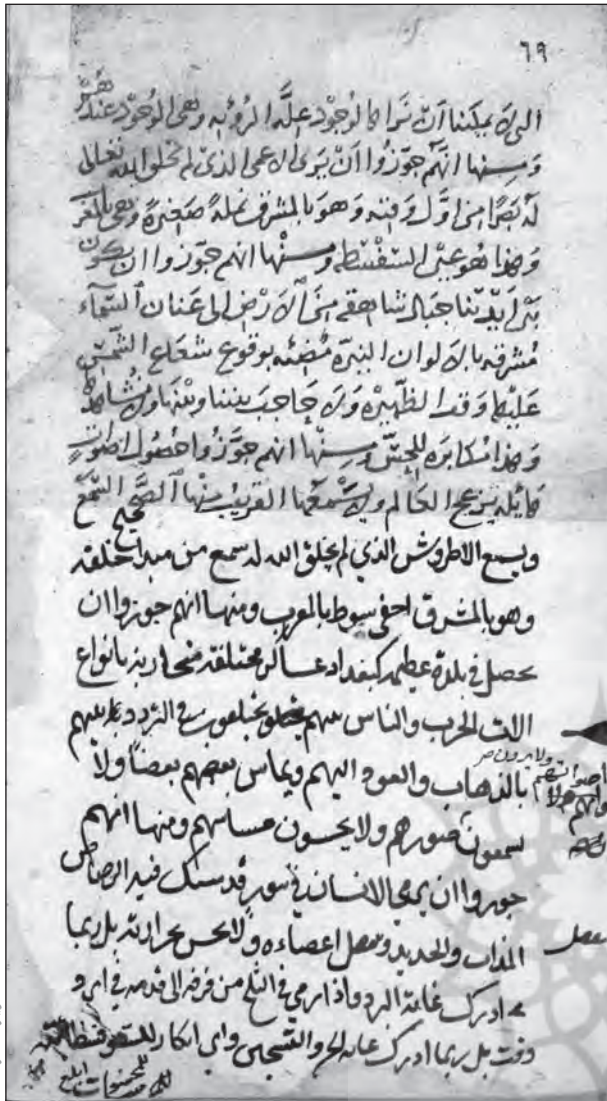 ٦٩
التى لا يمكننا ان نراها كالوجود علة الرؤيه وهى الوجود عندهم
ومنها انهم جوزوا ان يرى الاعمى الذى لم يخلق الله تعالى
له بصرا من اول وقته وهو بالمشرق نملة صغيرة وهى بالمغرب
وهذا هو عين السفسطه ومنها انهم جوزوا ان يكون
بين ايدينا جبال شاهقه من الارض الى عنان السماء
مشرقه بالالوان النيرة مضيئه بوقوع شعاع الشمس
عليها وقت الظهيرة ولا حاجب بيننا وبينها ولا نشاهدها
وهذا مكابره للحس ومنها انهم جوزوا حصول اصوات
هايله يزعج العالم ولا يسمعها القريب منها الصحيح السمع
ويسمع الاطروش الذي لم يخلق الله له سمع من مبدأ خلقه
وهو بالمشرق اخفى صوت بالمغرب ومنها انهم جوزوا ان
يحصل في بلدة عظيمة كبغداد عساكر مختلفة متحاربة بانواع
الات الحرب والناس بينهم يختلفون في التردد بينهم
بالذهاب والعود اليهم ويماس بعضهم بعضا ولا
ولا يرون صورهم
اصواتهم
يسمعون صورهم ولا يحسون مساسهم ومنها انهم
جوزوا ان يرمي الانسان في تنور قد سبك فيه الرصاص
المذاب والحديد وتنفصل اعضاءه ولا يحس بحرارته بل ربما
ادرك غاية البرد واذا رمي في الثلج من فرقه الى قدمه في اي
وقت بل ربما ادرك غاية الحر والتسخين واي انكار
للمحسوسات ابلغ